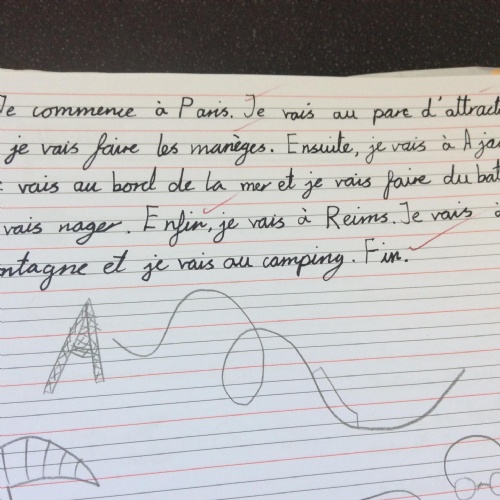 Je commence à Paris. Je vais au parc d'attract
je vais faire les manèges. Ensuite, je vais à Aja
vais au bord de la mer et je vais faire du bat
vais nager. Enfin, je vais à Reims. Je vais à
ntagne et je vais au camping. Fin.